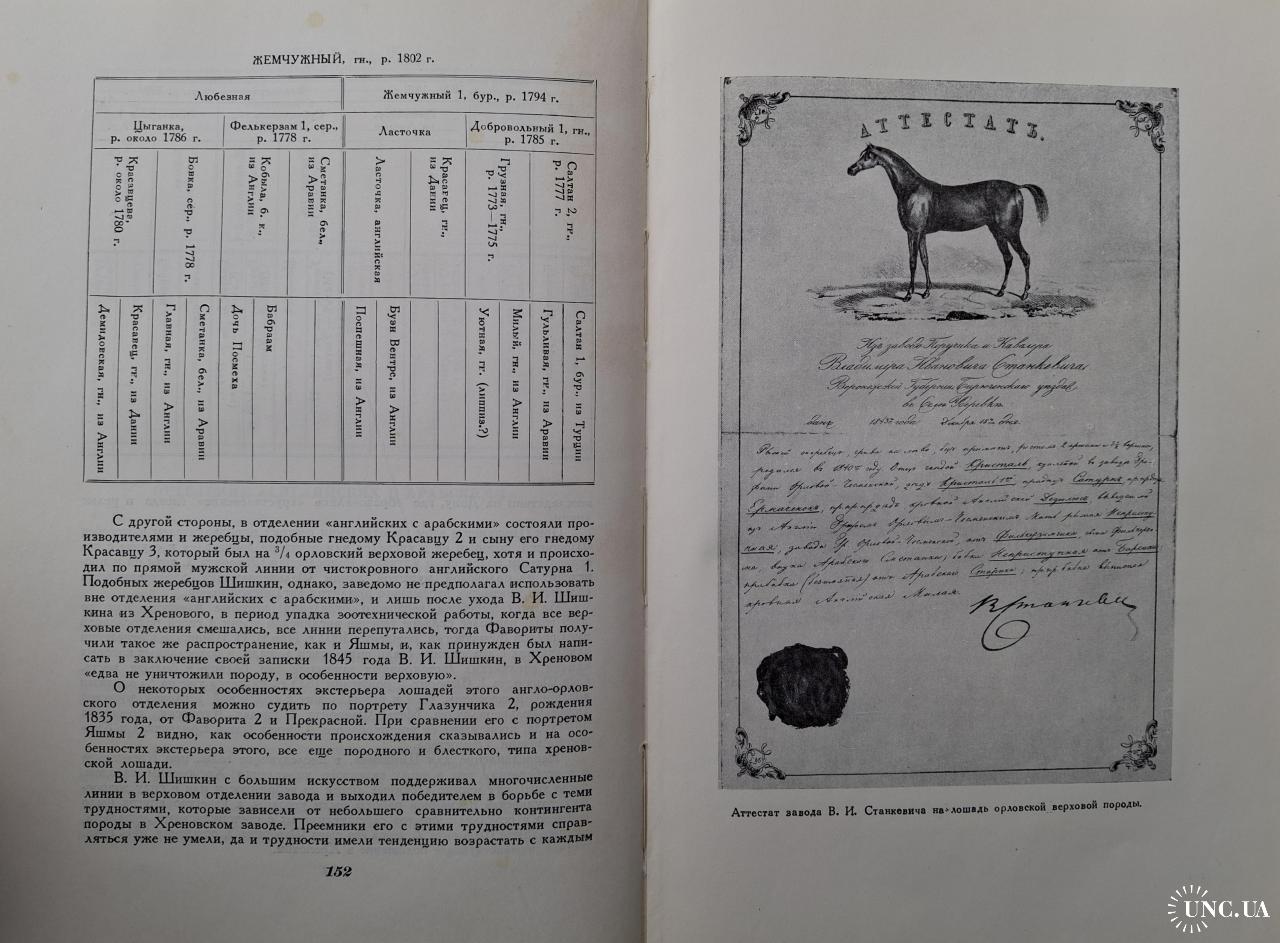 ЖЕМЧУЖНЫЙ, гн., р. 1802 г.
Любезная
Жемчужный 1, бур., р. 1794 г.
Цыганка,
р. около 1786 г.
Фелькерзам 1, сер.,
р. 1778 г.
Ласточка
Добровольный 1, гн.,
р. 1785 г.
Красавцева,
р. около 1780 г.
Бовка, сер., р. 1778 г.
Кобыла, б. к.,
из Англии
Сметанка, бел.,
из Аравии
Ласточка, английская
Красавец, гг.,
из Дании
Грузная, гн.,
р. 1773—1775 г.
Салтан 2, гг.,
р. 1777 г.
Демидовская, гн., из Англии
Красавец, гг., из Дании
Главная, гн., из Англии
Сметанка, бел., из Аравии
Дочь Посмеха
Бабраам
Поспешная, из Англии
Буэн Вентре, из Англии
Уютная, гг. (липпиз.?)
Милый, гн., из Англии
Гульливая, гг., из Аравии
Салтан 1, бур., из Турции
С другой стороны, в отделении «английских с арабскими» состояли про-
изводителями и жеребцы, подобные гнедому Красавцу 2 и сыну его гнедому
Красавцу 3, который был на 3/4 орловский верховой жеребец, хотя и происхо-
дил по прямой мужской линии от чистокровного английского Сатурна 1.
Подобных жеребцов Шишкин, однако, заведомо не предполагал использовать
вне отделения «английских с арабскими», и лишь после ухода В. И. Шиш-
кина из Хренового, в период упадка зоотехнической работы, когда все вер-
ховые отделения смешались, все линии перепутались, тогда Фавориты полу-
чили такое же распространение, как и Яшмы, и, как принужден был напи-
сать в заключение своей записки 1845 года В. И. Шишкин, в Хреновом
«едва не уничтожили породу, в особенности верховую».
О некоторых особенностях экстерьера лошадей этого англо-орлов-
ского отделения можно судить по портрету Глазунчика 2, рождения
1835 года, от Фаворита 2 и Прекрасной. При сравнении его с портретом
Яшмы 2 видно, как особенности происхождения сказывались и на осо-
бенностях экстерьера этого, все еще породного и блесткого, типа хренов-
ской лошади.
В. И. Шишкин с большим искусством поддерживал многочисленные
линии в верховом отделении завода и выходил победителем в борьбе с теми
трудностями, которые зависели от небольшего сравнительно контингента
породы в Хреновском заводе. Преемники его с этими трудностями справ-
ляться уже не умели, да и трудности имели тенденцию возрастать с каждым
152
АТТЕСТАТЪ.
Изъ завода Поручика и Кавалера
Владимира Ивановича Станкевича,
Воронежской Губерніи Бирюченскаго уѣзда,
въ Селѣ
данъ 1843го года Декабря 18го дня.
родился въ 1840мъ году. Отецъ гнѣдой Кристалъ,
Орловой-Чесменской, дѣдъ Кристалъ 1й прадѣдъ Сатурнъ,
кровной Англійской
изъ Англіи Графомъ Орловымъ-Чесменскимъ. Мать рыжая
завода Гр. Орловой-Чесменской, отъ
Арабскаго Сметанки; бабка Неприступная отъ
отъ Арабскаго
кровная Англійская Милая.
Аттестат завода В. И. Станкевича на лошадь орловской верховой породы.
UNC.UA